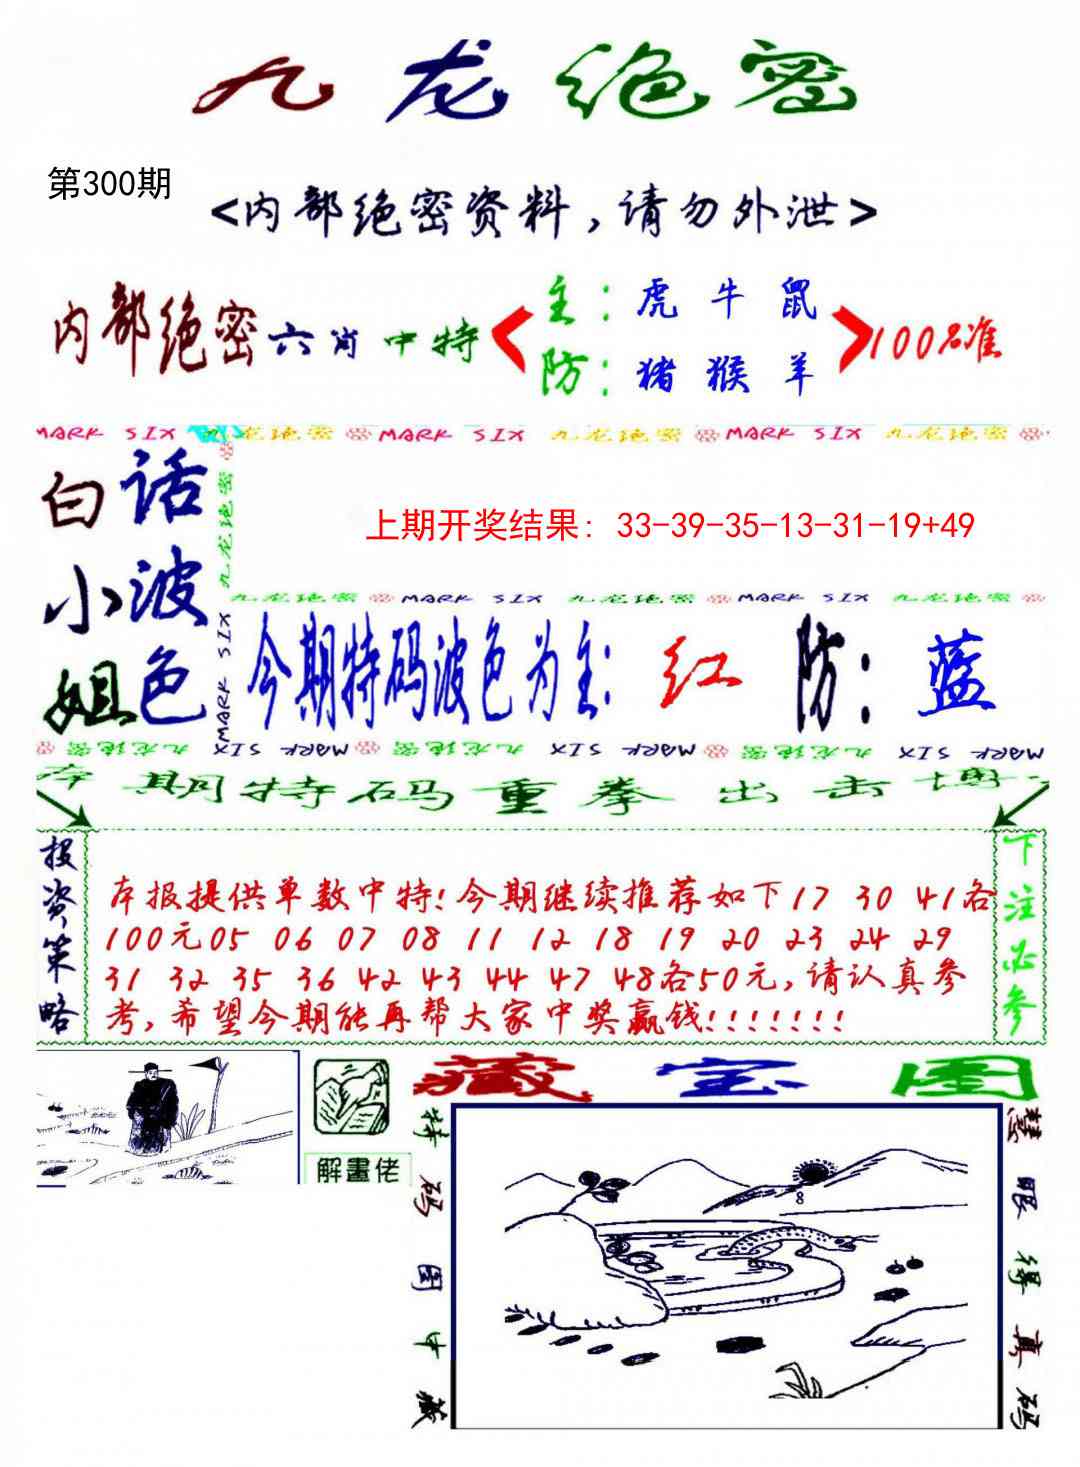 九龙绝密
第300期
<内部绝密资料，请勿外泄>
内部绝密六肖中特
主：虎 牛 鼠
防：猪 猴 羊
100%准
MARK SIX 九龙绝密 MARK SIX 九龙绝密 MARK SIX 九龙绝密
白话
小波
姐色
九龙绝密
MARK SIX
上期开奖结果: 33-39-35-13-31-19+49
九龙绝密 MARK SIX 九龙绝密 MARK SIX 九龙绝密
今期特码波色为主: 红 防: 蓝
九龙绝密 MARK SIX 九龙绝密 MARK SIX 九龙绝密 MARK SIX
本期特码重拳出击博
投资策略
本报提供单数中特!今期继续推荐如下17 30 41各
100元05 06 07 08 11 12 18 19 20 23 24 29
31 32 35 36 42 43 44 47 48各50元,请认真参
考,希望今期能再帮大家中奖赢钱!!!!!!!
下注必参
解畫佬
藏宝图
特码图中藏
慧眼得真码